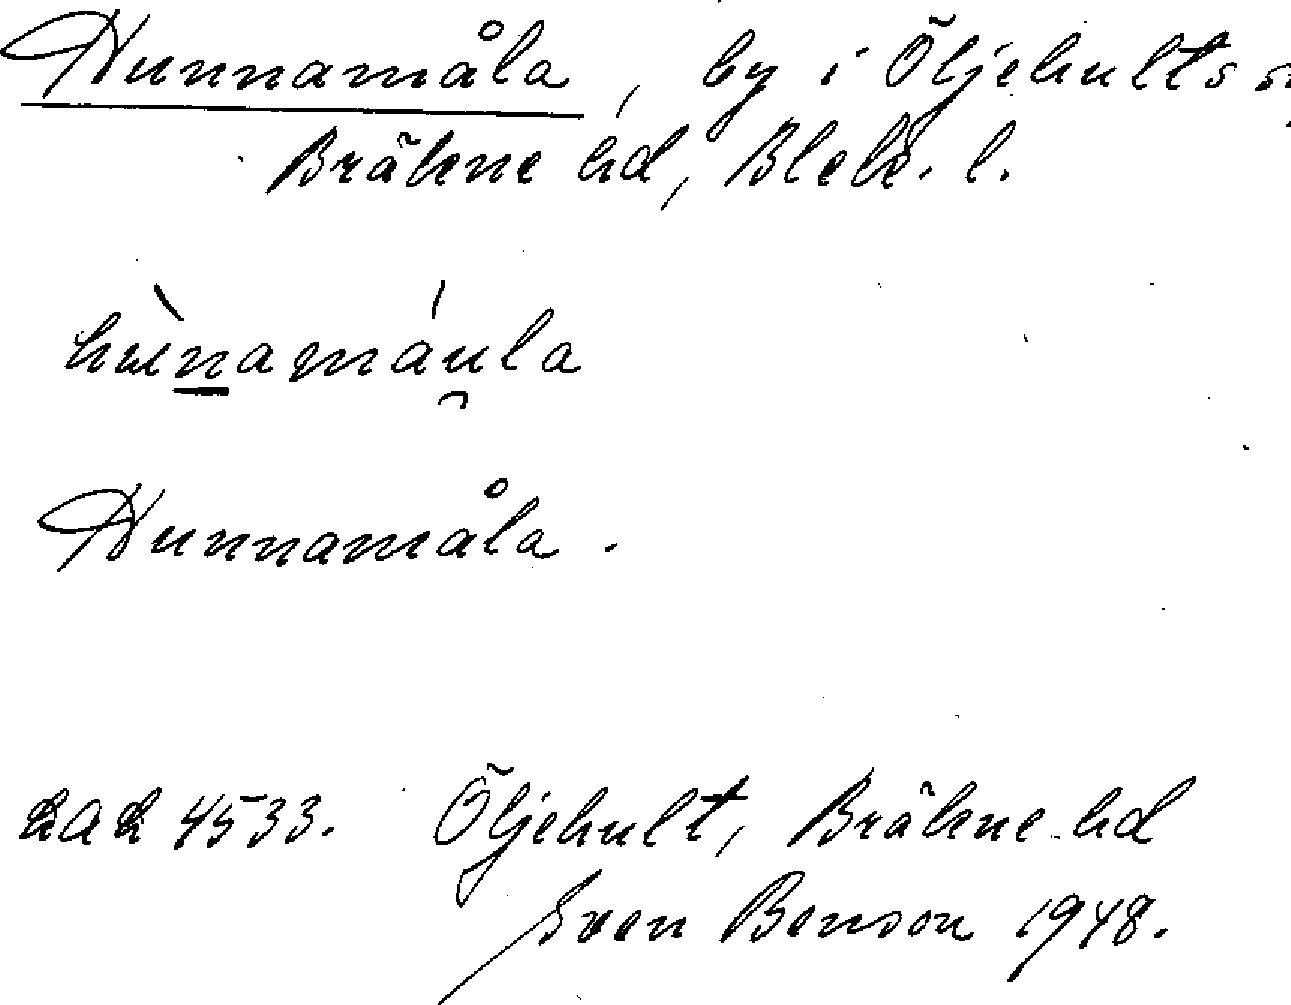 Hunnamåla, by i Öljehults
Bräkne hd, Blek. l.
Hunnamåla.
4533. Öljehult, Bräkne hd
Sven Benson 1948.